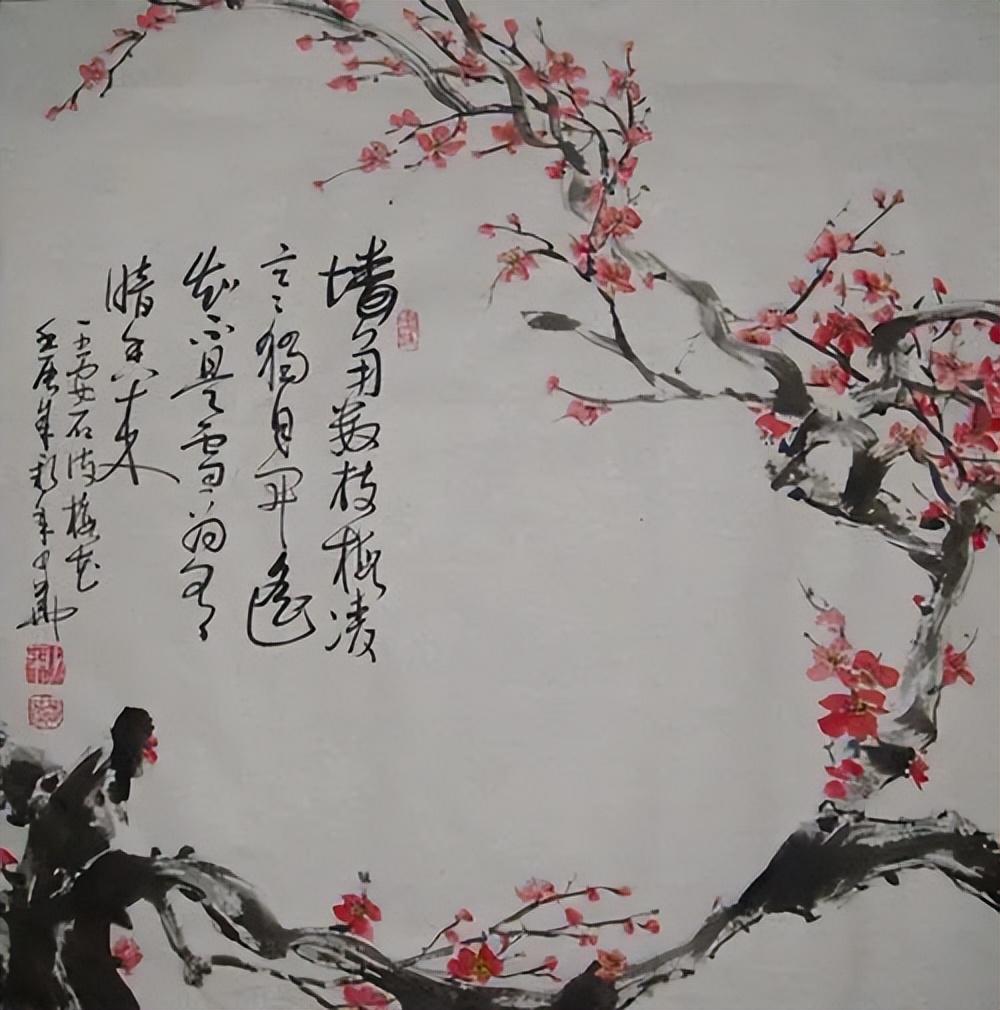 墙角数枝梅凌
寒独自开遥
知不是雪为有
暗香来
王安石诗梅花
年